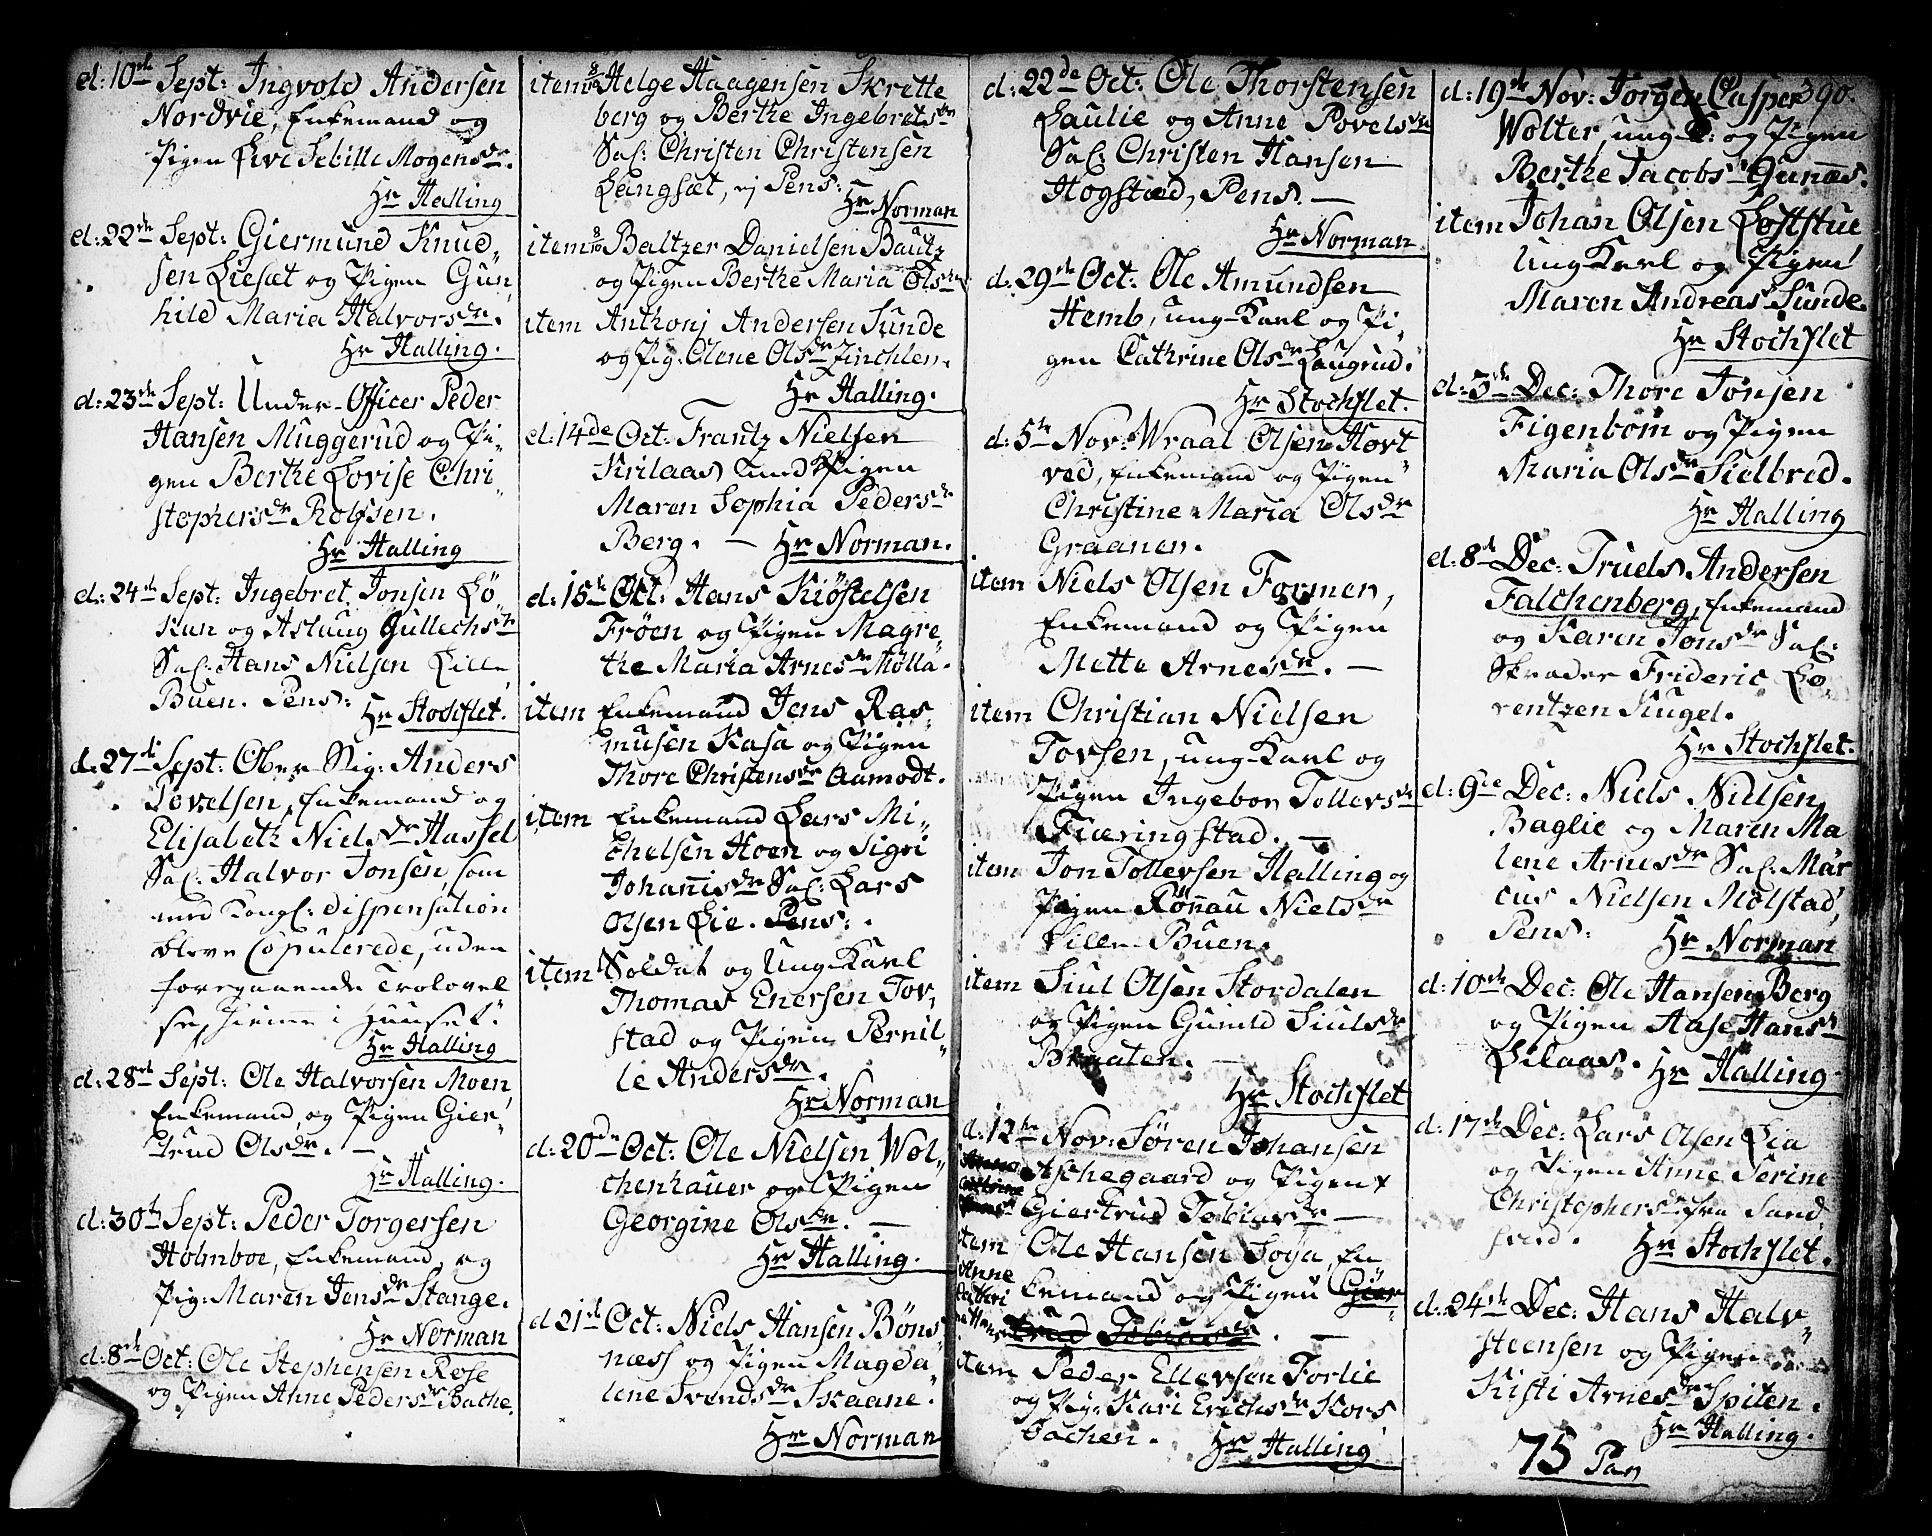 d: 10de Sept: Ingvold Andersen
Nordvie, Enkemand og
Pigen Live Sebille Mogensdr.
Hr Halling
d: 22de Sept: Giermund Knud„
sen Liesæt og Pigen Gun„
hild Maria Halvorsdr.
Hr Halling.
d: 23de Sept: Under-Officer Peder
Hansen Muggerud og Pi„
gen Berthe Lovise Chri„
stophersdr Rolfsen.
Hr Halling
d: 24de Sept: Ingebret Jonsen Lø„
kun og Aslaug Gullechsdr
Sal: Hans Nielsen Lille
Buen. Pens:
Hr Stochflet.
d: 27de Sept: Ober Stig: Anders
Povelsen, Enkemand og
Elisabeth Nielsdr Hassel
Sal: Halvor Jonsen, som
med Kongl: dispensation
bleve Copulerede, uden
foregaaende Trolovel
se, hieme i Huuset.
Hr Halling
d: 28de Sept: Ole Halvorsen Moen,
Enkemand, og Pigen Gier„
trud Olsdr. —
Hr Halling.
d: 30te Sept: Peder Torgersen
Holmboe, Enkemand, og
Pig: Maren Jensdr Stange.
Hr Norman
d: 8de Oct: Ole Stephensen Rose
og Pigen Anne Pedersdr Bache.
item 8/10 Helge Haagensen Skrette
berg og Berthe Ingebretsdr
Sal: Christen Christensen
Langsæt, ej Pens:
Hr Norman
item 8/10 Baltzer Danielsen Bautz
og Pigen Berthe Maria Olsdr
item Anthonj Andersen Sunde
og Pig: Olene Olsdr Finchlen.
Hr Halling.
d: 14de Oct: Frantz Nielsen
Krilaas und Pigen
Maren Sophia Pedersdr
Berg. — Hr Norman.
d: 15de Oct: Hans Kiøstelsen
Frøen og Pigen Magre„
the Maria Arnesdr Mølla.
item Enkemand Jens Ras„
musen Kasa og Pigen
Thore Christensdr Aamodt.
item Enkemand Lars Mi„
chelsen Hoen og Sigri
Johannisdr Sal: Lars
Olsen Lie. Pens:
item Soldat og Ung-Karl
Thomas Enersen Tor„
stad og Pigen Pernil„
le Andersdr.
Hr Norman
d: 20de Oct: Ole Nielsen Wol„
chenhauer og Pigen
Georgine Olsdr. —
Hr Halling.
d: 21de Oct: Niels Hansen Bøns„
næss og Pigen Magda„
lene Svendsdr Skaane.
Hr Norman
d: 22de Oct: Ole Thorstensen
Laulie og Anne Povelsdr
Sal: Christen Hansen
Hogstad, Pens. —
Hr Norman
d: 29de Oct: Ole Amundsen
Hemb, ung-Karl og Pi„
gen Cathrine Olsdr Haugrud.
Hr Stochflet.
d: 5te Nov: Wraal Olsen Hovt
ved, Enkemand og Pigen
Christine Maria Olsdr
Graanen.
item Niels Olsen Formen,
Enkemand og Pigen
Mette Arnesdr. —
item Christian Nielsen
Torsen, ung-Karl og
Pigen Ingebor Tollevsdr
Fiæringstad. —
item Jon Tollevsen Halling og
Pigen Rønnau Nielsdr
Lille Buen.
item Siul Olsen Stordalen
og Pigen Gunild Siulsdr
Braaten. —
Hr Stochflet
d: 12te Nov: Søren Johansen
Aschegaard og Pigen x
Giertrud Tobiasdr —
item Ole Hansen Soya, En
kemand og Pigen Gier„
trud Tobiasdr. —
Anne
Cathri
item Peder Ellevsen Torlie
og Pig: Kari Erichsdr Kors
bachen.
Hr Halling
390.
d: 19de Nov: Jørgen Casper
Wolter, ung K: og Pigen
Berthe Jacobsdr Gunnæs.
item Johan Olsen Loftstue
Ung-Karl og Pigen
Maren Andreasdr Sunde.
Hr Stochflet
d: 3de Dec: Thore Jonsen
Figenbom og Pigen
Maria Olsdr Sielbred.
Hr Halling
d: 8de Dec: Truels Andersen
Falchenberg, Enkemand
og Karen Jonsdr Sal:
Skrader Frideric Lo„
rentzen Kugel.
Hr Stochflet.
d: 9de Dec: Niels Nielsen
Baglie og Maren Ma
lene Arnesdr Sal: Mar
cus Nielsen Mølstad,
Pens:
Hr Norman
d: 10de Dec: Ole Hansen Berg
og Pigen Aase Hansdr
Lilaas. Hr Halling.
d: 17de Dec: Lars Olsen Lia
og Pigen Anne Serine
Christophersdr fra Sand
Hr Stochflet.
d: 24de Dec: Hans Halv„
steensen og Pigen
Kisti Arnesdr Spiten.
Hr Halling.
75 Par